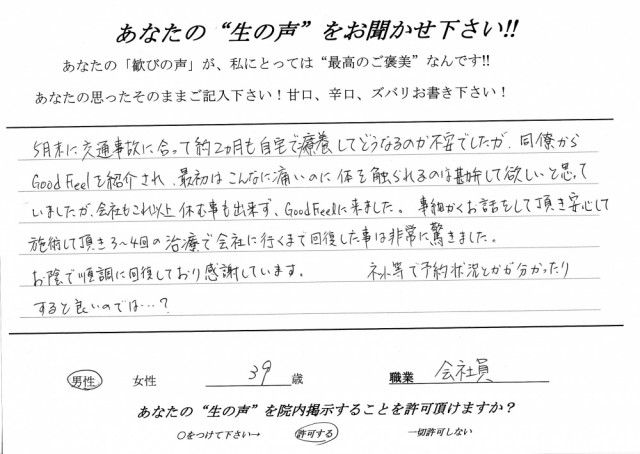 あなたの“生の声”をお聞かせ下さい!!
あなたの「歓びの声」が、私にとっては“最高のご褒美”なんです!!
あなたの思ったそのままご記入下さい！甘口、辛口、ズバリお書き下さい！
5月末に交通事故に合って約2カ月も自宅で療養してどうなるのか不安でしたが、同僚から
Good Feelを紹介され、最初はこんなに痛いのに体を触られるのは勘弁して欲しいと思って
いましたが、会社もこれ以上休む事も出来ず、Good Feelに来ました。事細かくお話をして頂き安心して
施術して頂き3〜4回の治療で会社に行くまで回復した事は非常に驚きました。
お陰で順調に回復しており感謝しています。 ネット等で予約状況とかが分かったり
すると良いのでは…？
男性 女性 39 歳 職業 会社員
あなたの“生の声”を院内掲示することを許可頂けますか？
○をつけて下さい→ 許可する 一切許可しない